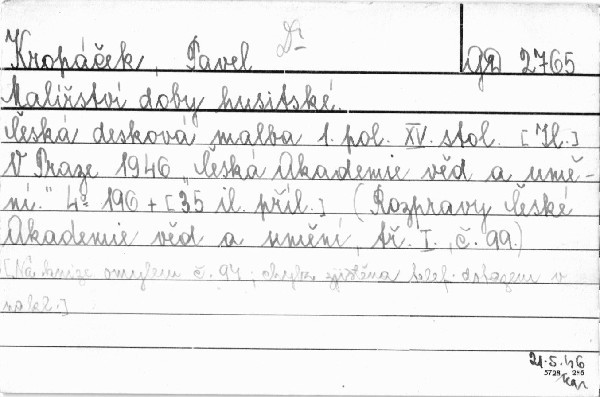 Kropáček, Pavel Dr GD 2765
Malířství doby husitské.
Česká desková malba 1. pol. XV. stol. [Il.]
V Praze 1946 „Česká Akademie věd a umě-
ní." 4° 196 + [35 il. příl.] (Rozpravy České
Akademie věd a umění, tř. I., č. 99.)
[Na knize omylem č. 94; chyba zjištěna telef. dotazem v
nakl.]
21.5.46
5729